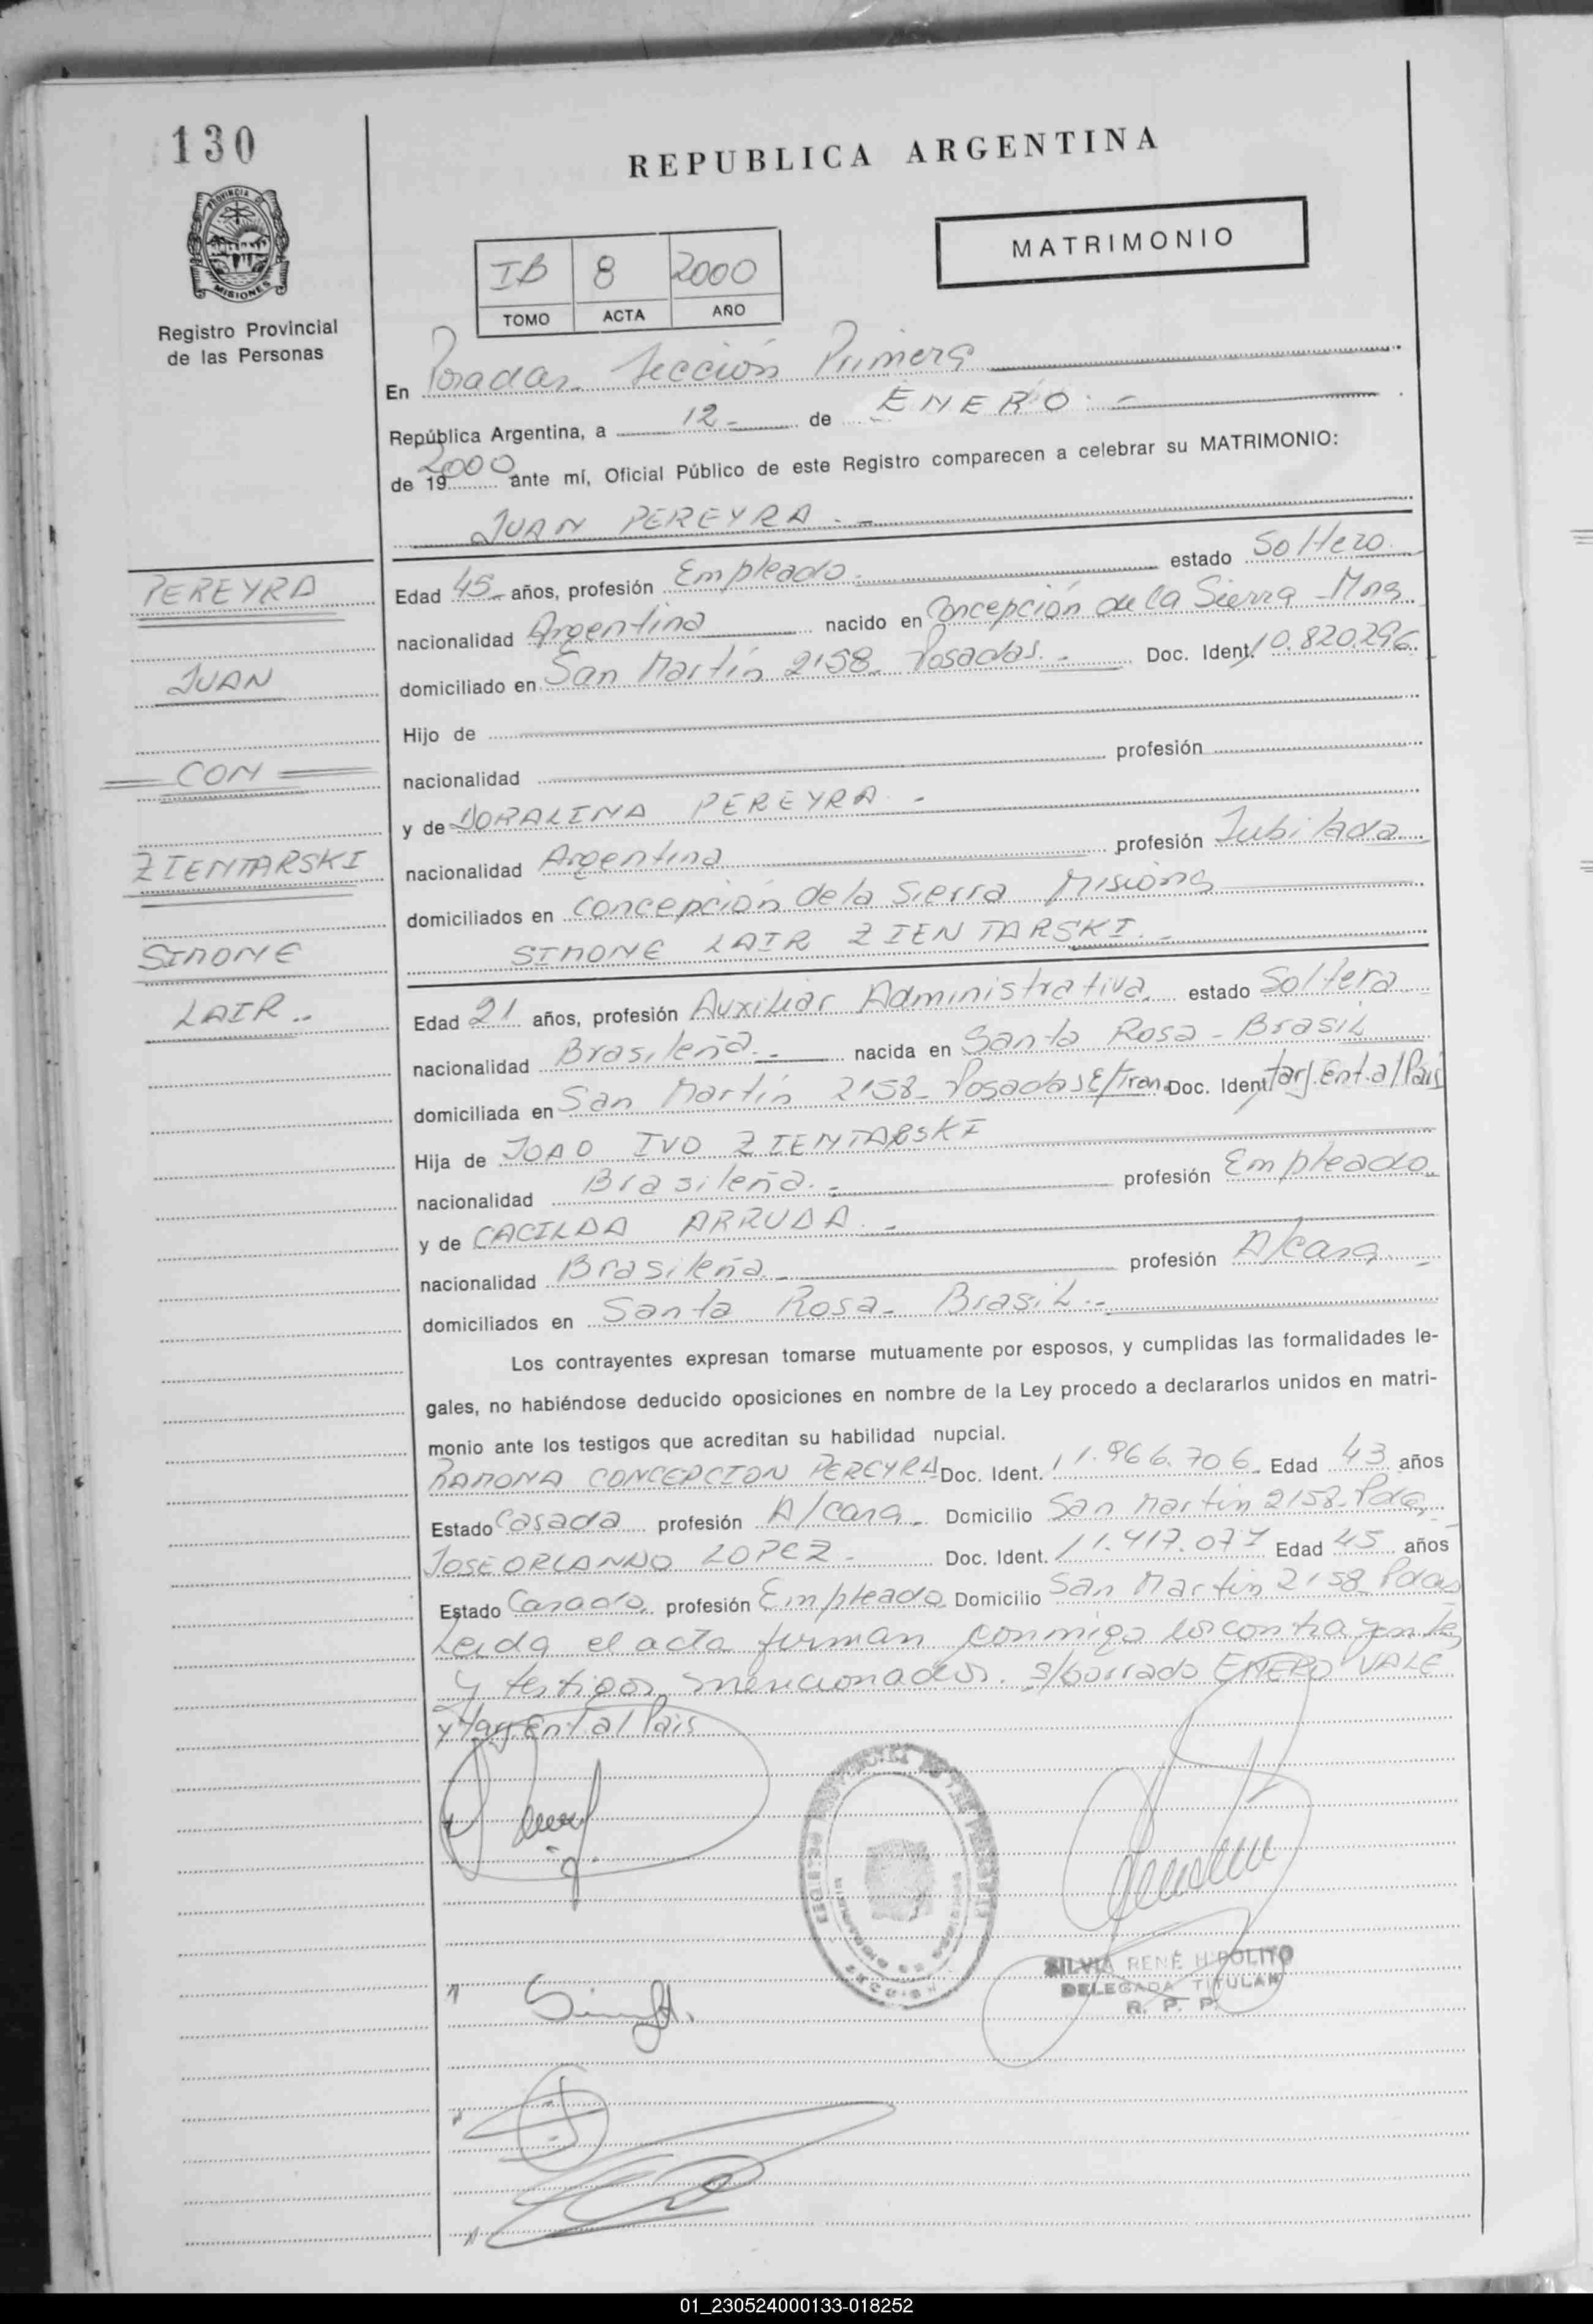 130
REPUBLICA ARGENTINA
PROVINCIA DE
MISIONES
Registro Provincial
de las Personas
IB 8 2000
TOMO ACTA AÑO
MATRIMONIO
En Posadas Sección Primera
República Argentina, a 12 - de ENERO. -
de 19 2000 ante mí, Oficial Público de este Registro comparecen a celebrar su MATRIMONIO:
JUAN PEREYRA. -
PEREYRA
JUAN
CON
ZIENTARSKI
SIMONE
LAIR..
Edad 45 años, profesión Empleado. estado Soltero.
nacionalidad Argentina nacido en Concepción de la Sierra Mns
domiciliado en San Martín 2158 Posadas. - Doc. Ident. 10.820.296
Hijo de
nacionalidad profesión
y de DORALINA PEREYRA. -
nacionalidad Argentina profesión Jubilada
domiciliados en Concepción de la Sierra Misiones
SIMONE LAIR ZIENTARSKI. -
Edad 21 años, profesión Auxiliar Administrativa estado Soltera
nacionalidad Brasileña. - nacida en Santa Rosa - Brasil
domiciliada en San Martín 2158 - Posadas E/Tran. Doc. Ident. Tarj. Ent. al País
Hija de JOAO IVO ZIENTARSKI
nacionalidad Brasileña. - profesión Empleado
y de CACILDA ARRUDA. -
nacionalidad Brasileña profesión A/casa
domiciliados en Santa Rosa - Brasil. -
Los contrayentes expresan tomarse mutuamente por esposos, y cumplidas las formalidades le-
gales, no habiéndose deducido oposiciones en nombre de la Ley procedo a declararlos unidos en matri-
monio ante los testigos que acreditan su habilidad nupcial.
RAMONA CONCEPCION PEREYRA Doc. Ident. 11.966.706 Edad 43 años
Estado Casada profesión A/casa Domicilio San Martín 2158 Pdas
JOSE ORLANDO LOPEZ - Doc. Ident. 11.417.077 Edad 45 años
Estado Casado profesión Empleado Domicilio San Martín 2158 Pdas
Leida el acta firman conmigo los contrayentes
y testigos mencionados. s/borrado ENERO VALE
y Tarj. Ent al País
SILVIA RENÉ HIPOLITO
DELEGADA TITULAR
R. P. P.
01_230524000133-018252